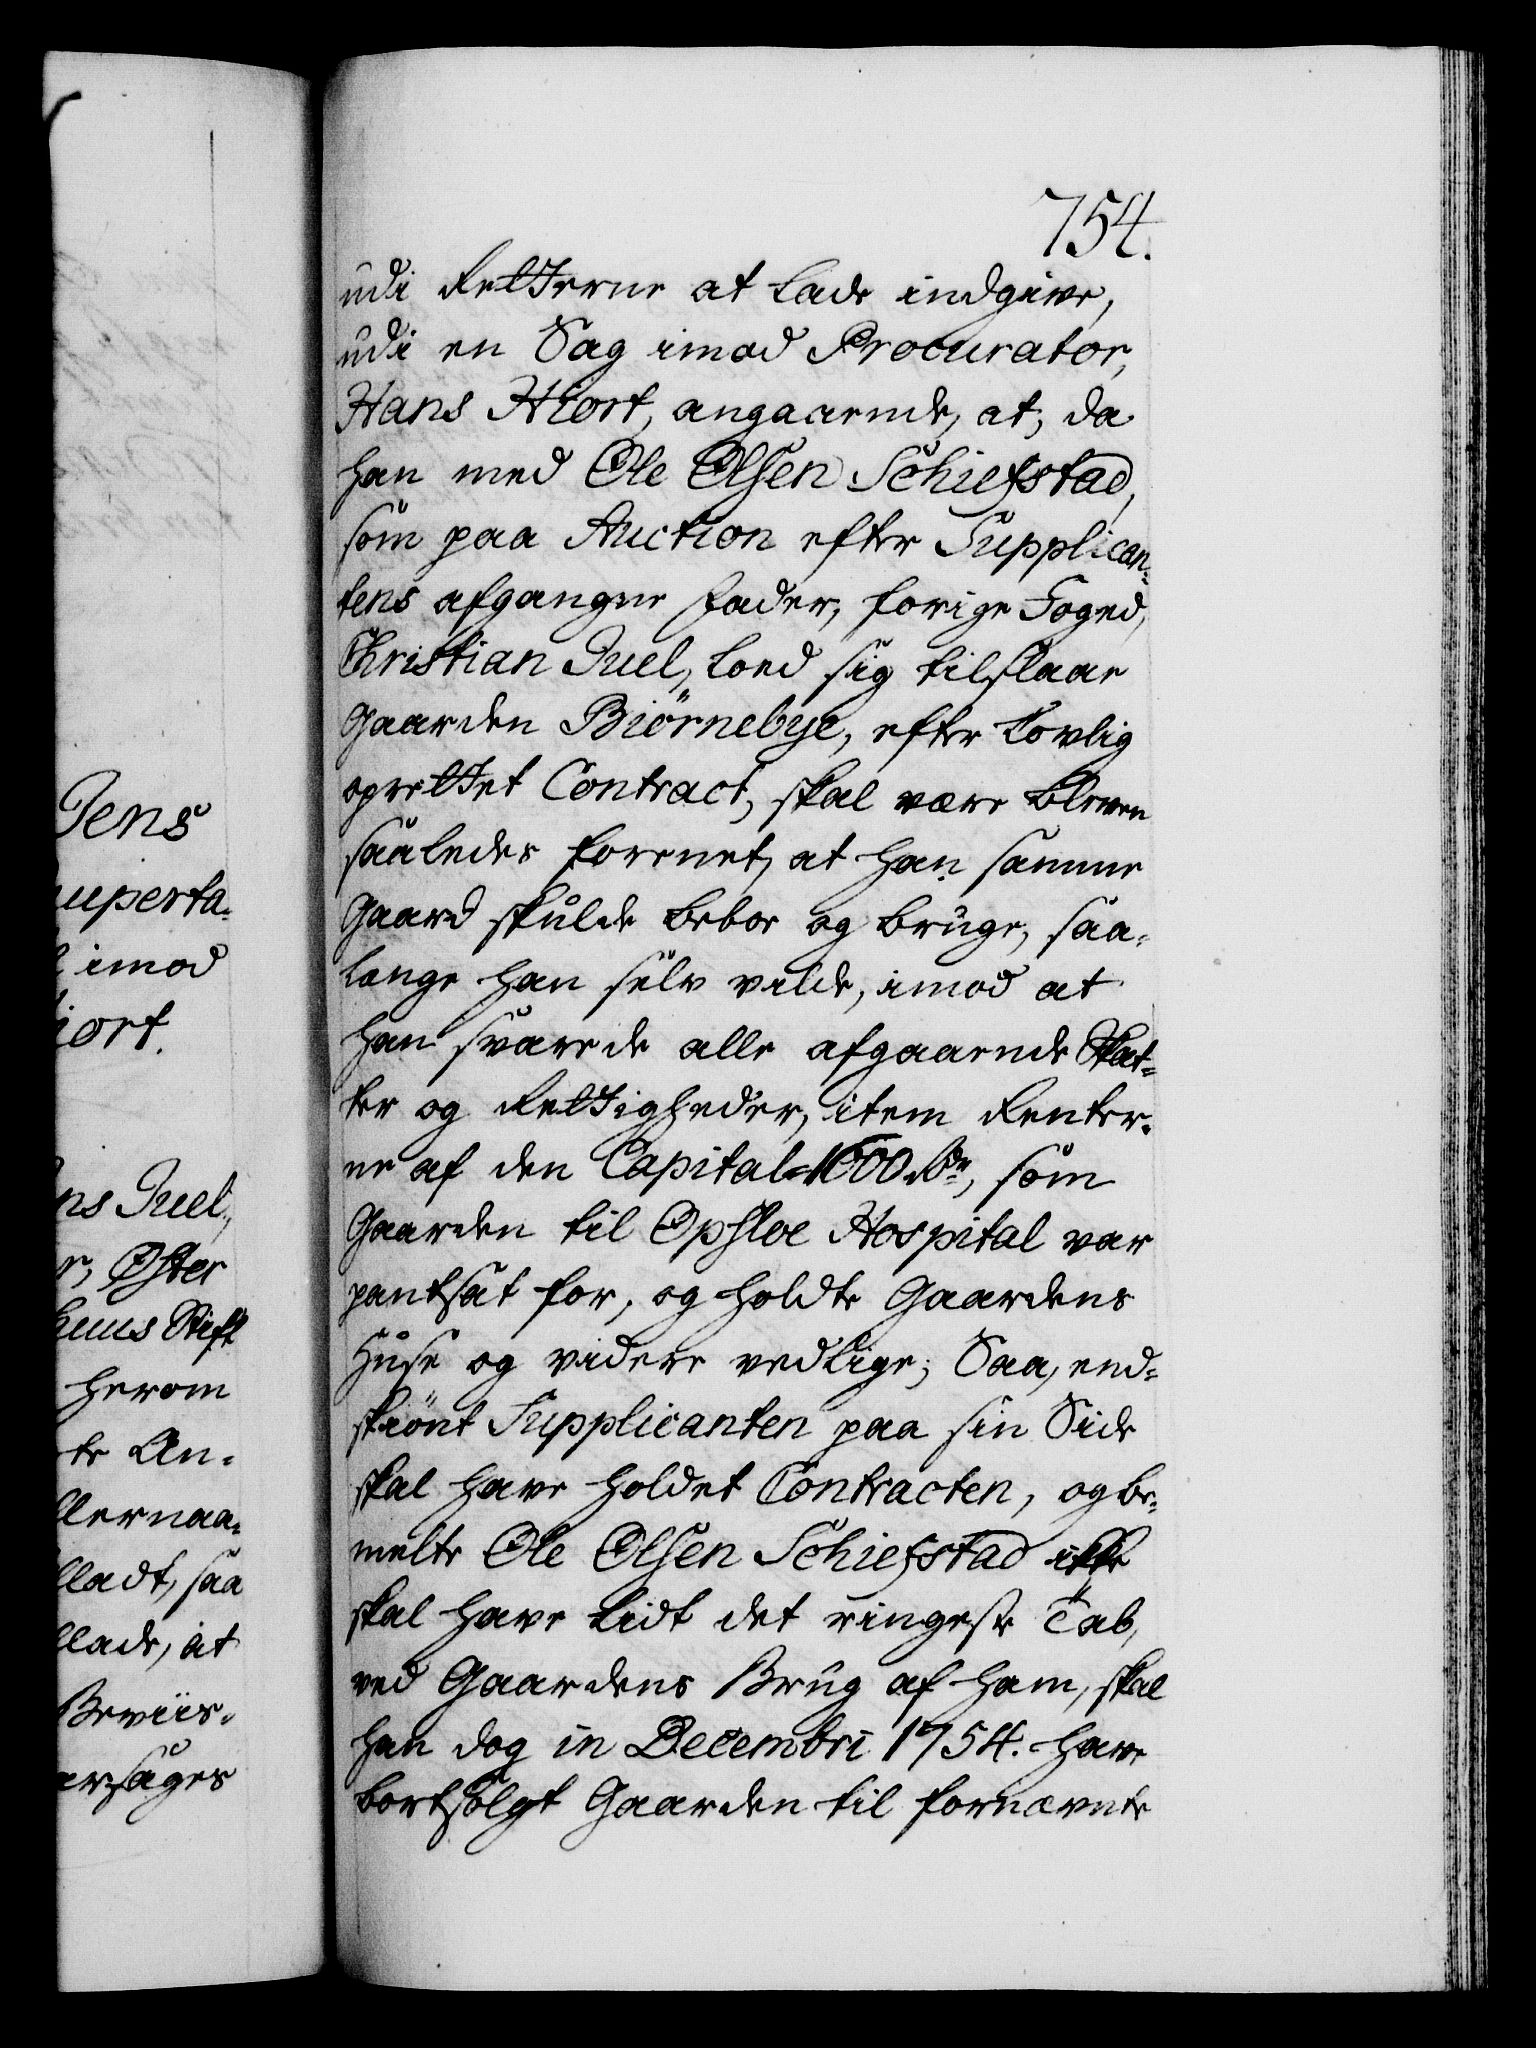 754.
udi Retterne at lade indgive,
udi en Sag imod Procurator,
Hans Hiort, angaaende, at, da
han med Ole Olsen Schiefstad,
som paa Auction efter Supplican-
tens afgangne Fader, forige Foged,
Christian Juel, loed sig tilslaae
Gaarden Biørnebye, efter lovlig
oprettet Contract, skal være bleven
saaledes forenet, at han samme
Gaard skulde beboe og bruge, saa-
længe han selv vilde, imod at
han svarede alle afgaaende Skat-
ter og Rettigheder, item Renter-
ne af den Capital 1600 Rdr, som
Gaarden til Opsloe Hospital var
pantsat for, og holdte Gaardens
Huse og videre vedlige; Saa, end-
skiønt Supplicanten paa sin Side
skal have holdet Contracten, og be-
melte Ole Olsen Schiefstad ikke
skal have lidt det ringeste Tab,
ved Gaardens Brug af ham, skal
han dog in Decembri 1754. have
bortsolgt Gaarden til fornævnte
Jens
uperta-
imod
iort.
ns Juel,
r, Øster
huus Stift
herom
te An-
llernaa-
lladt, saa
llade, at
Beviis-
arsages